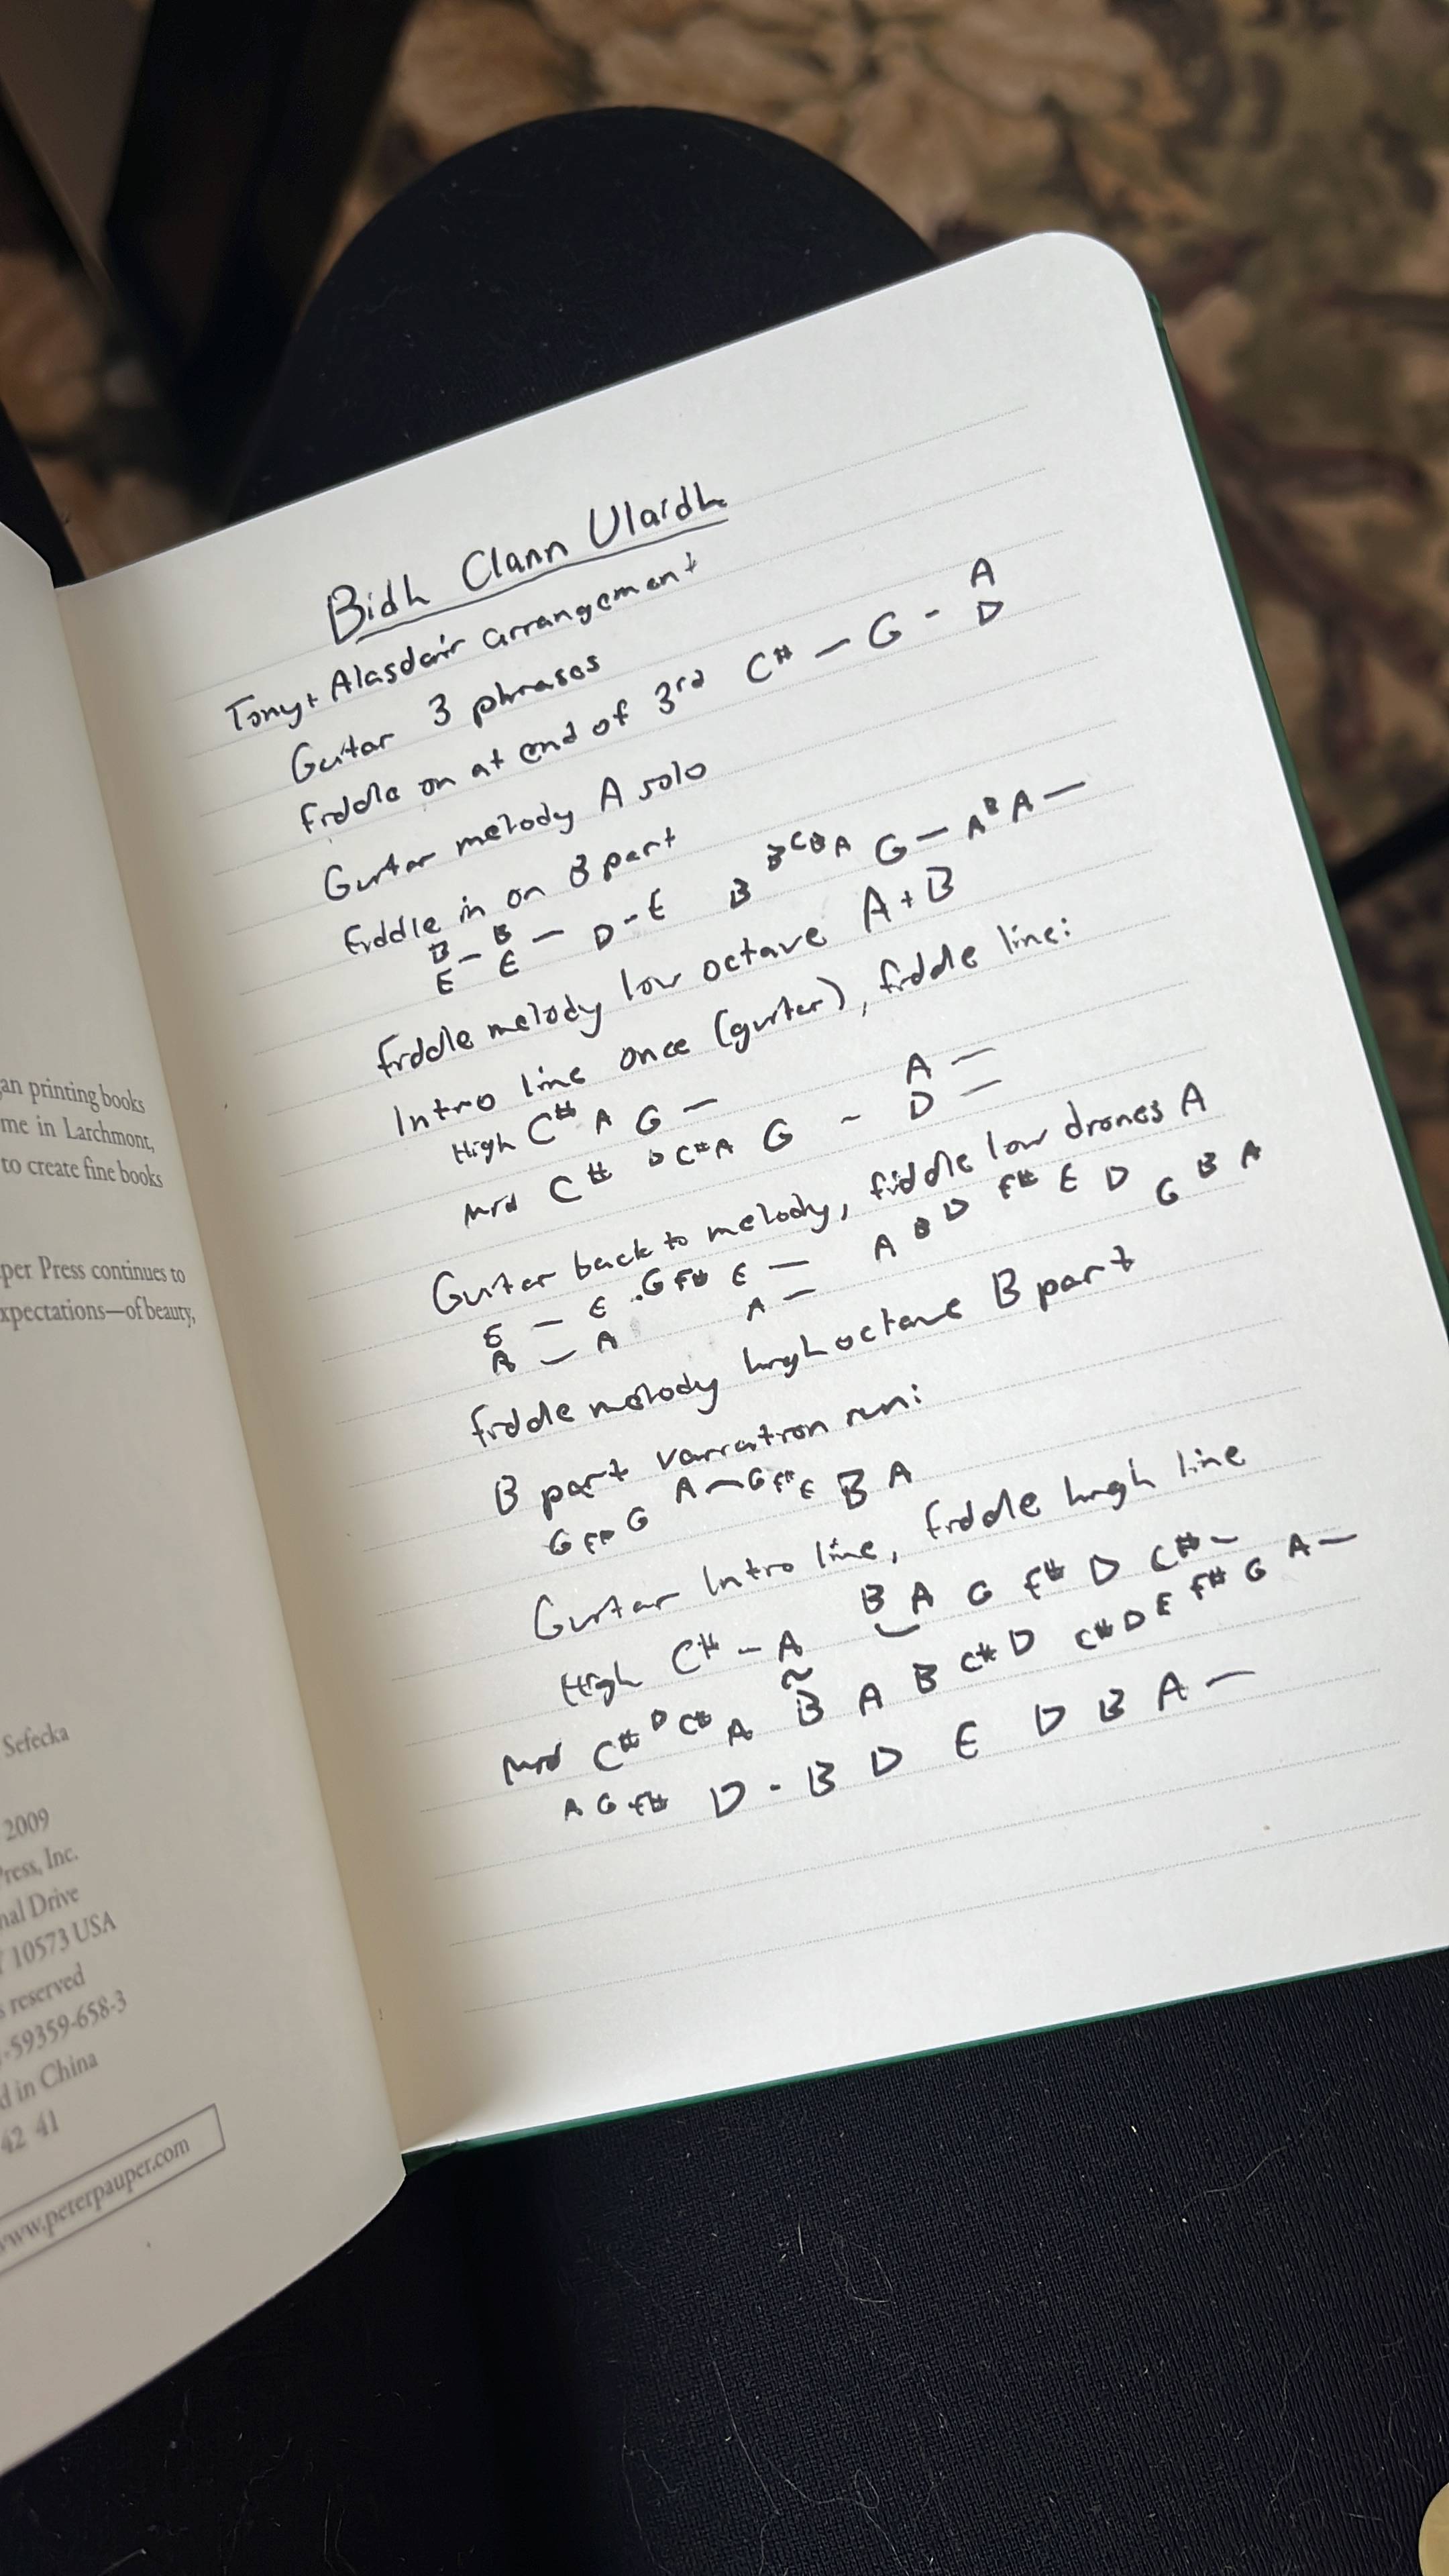 an printing books
me in Larchmont,
to create fine books
per Press continues to
xpectations—of beauty,
Sefecka
2009
Press, Inc.
nal Drive
10573 USA
s reserved
-59359-658-3
d in China
42 41
www.peterpauper.com
Bidh Clann Ulaidh
Tony + Alasdair arrangement
Guitar 3 phrases
fiddle on at end of 3rd C# — G - A
D
Guitar melody A solo
fiddle in on B part
B — B — D - E B B C B A G — A B A —
E E
fiddle melody low octave A + B
Intro line once (guitar), fiddle line:
High C# A G — A —
mid C# D C# A G - D —
Guitar back to melody, fiddle low drones A
E — E G F# E — A B D F# E D G B A
A — A A —
fiddle melody high octave B part
B part variation run:
G F# G A — G F# E B A
Guitar Intro line, fiddle high line
High C# — A B A G F# D C# —
mid C# D C# A B A B C# D C# D E F# G A —
A G F# D - B D E D B A —